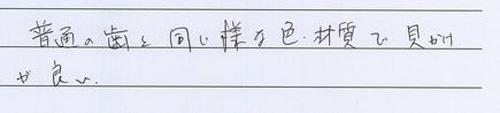 普通の歯と同じ様な色・材質で見かけ
が良い.